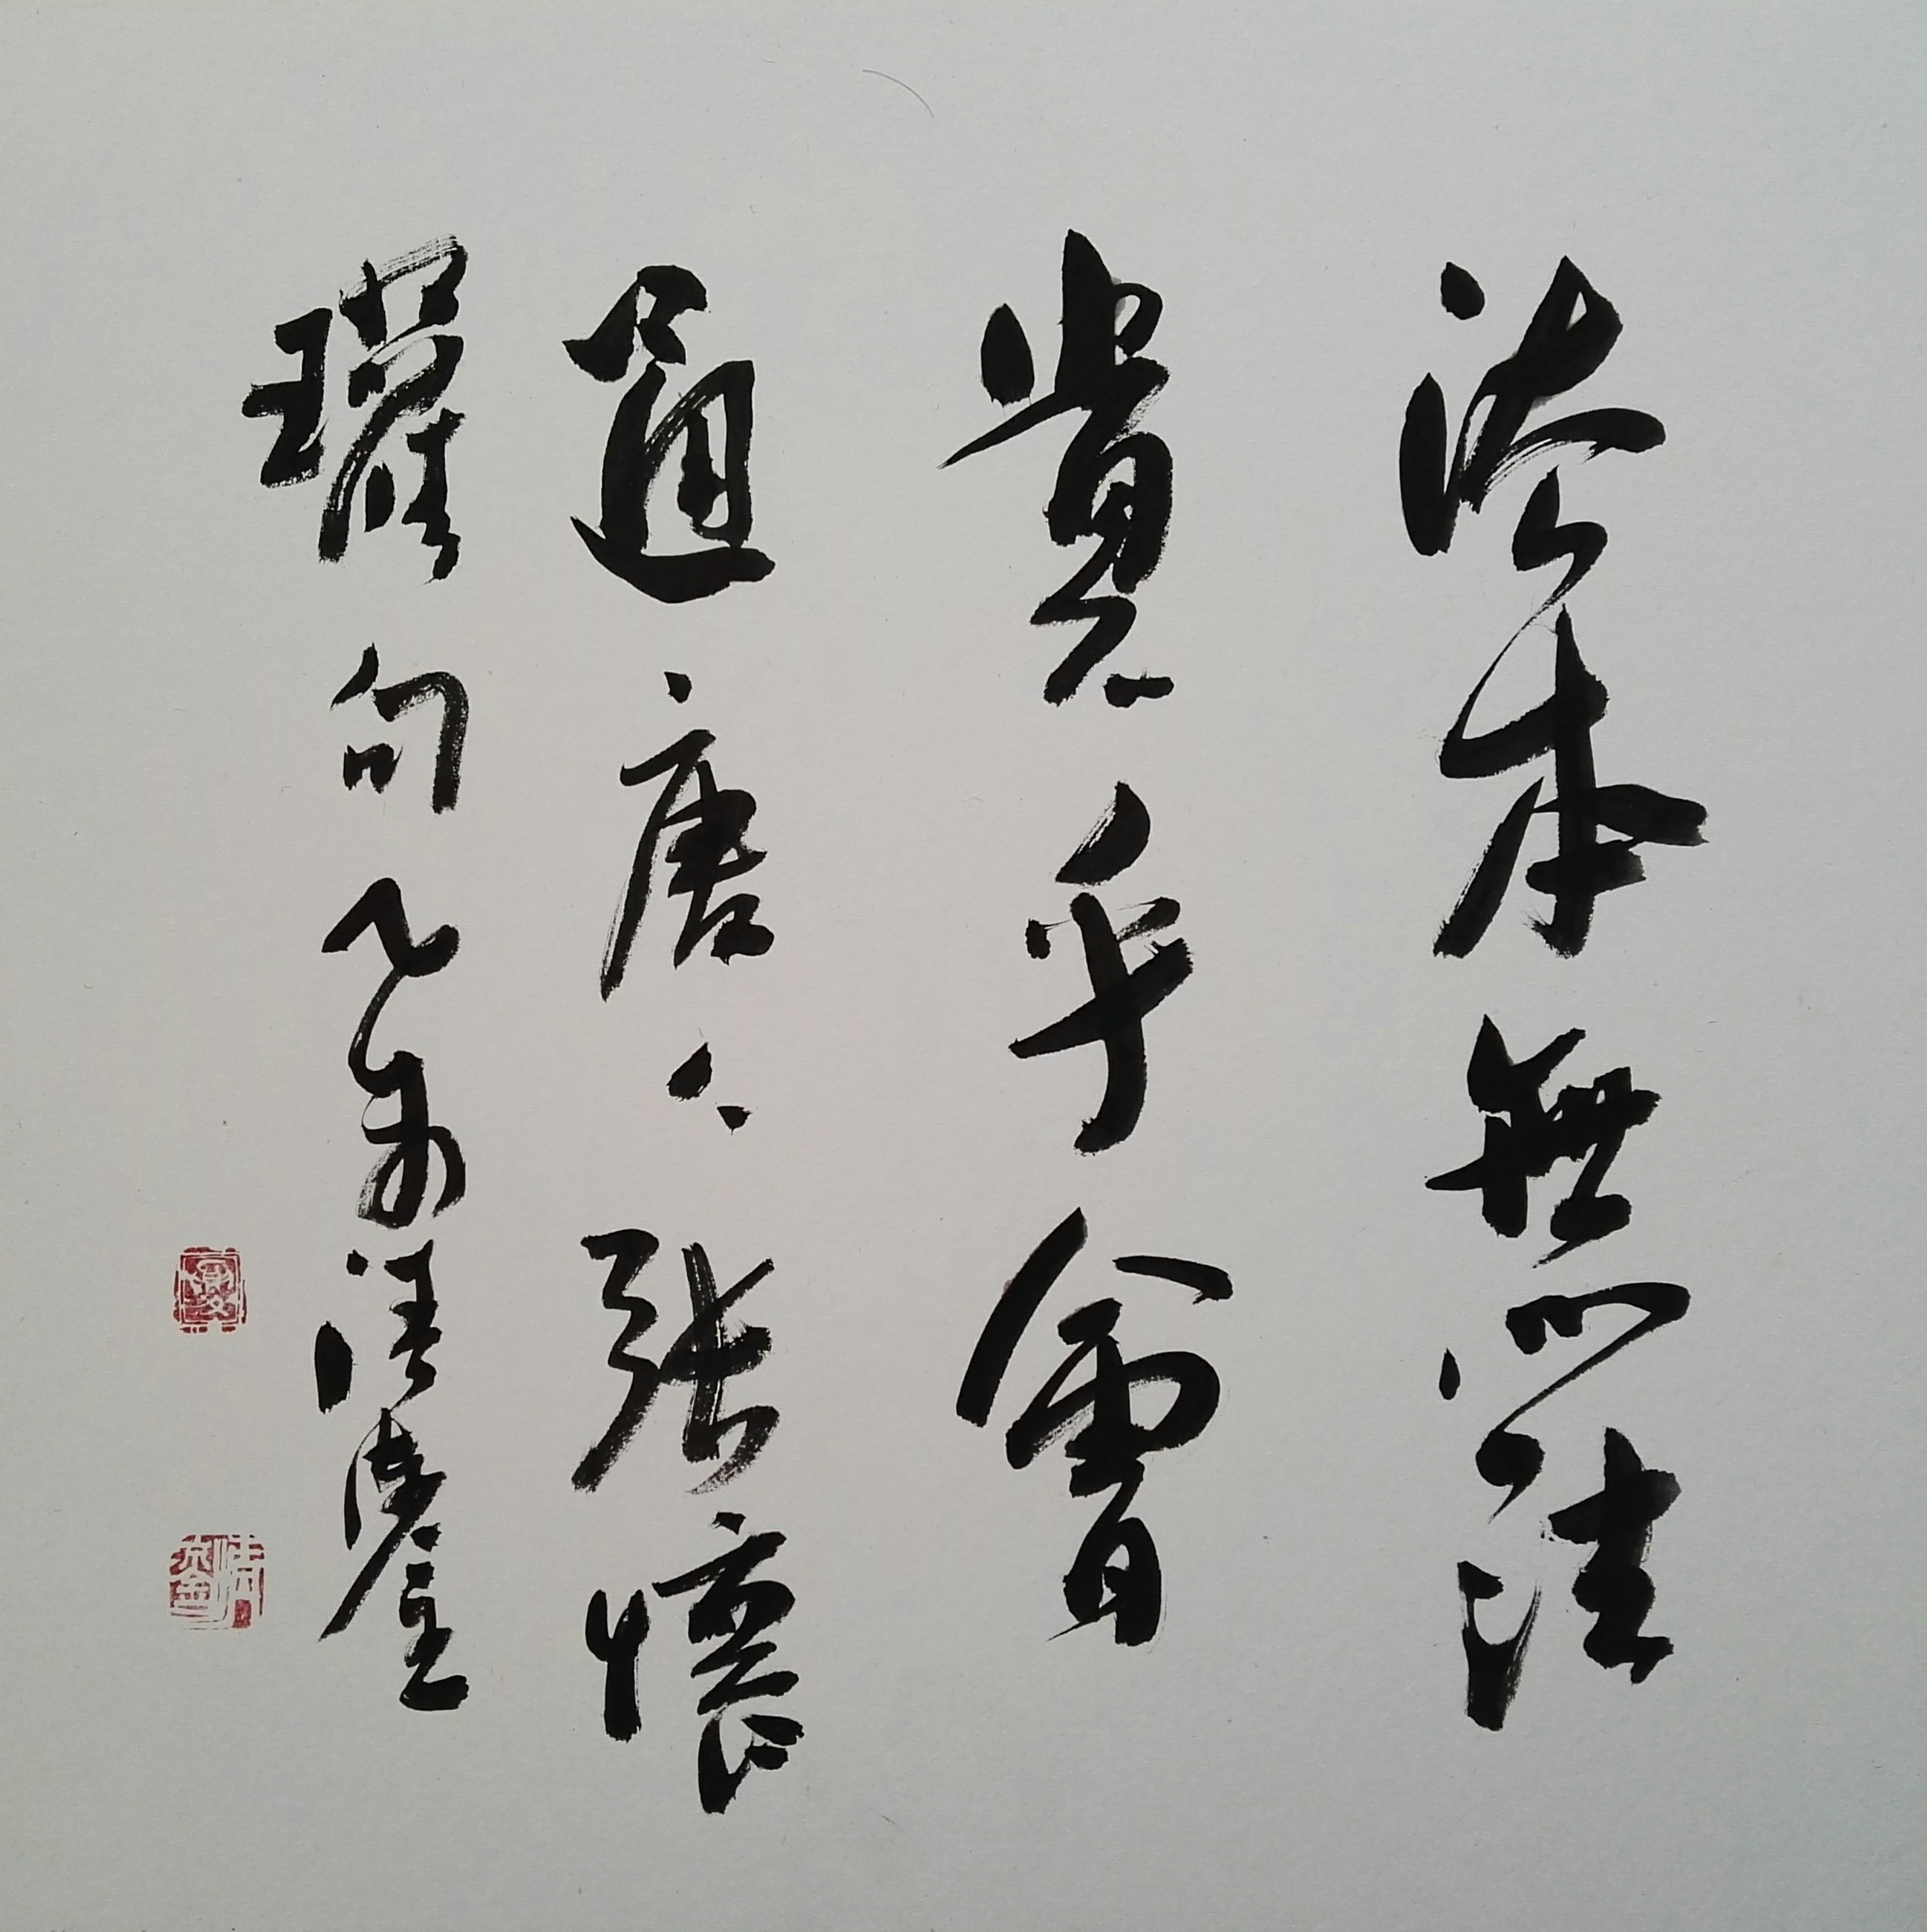 法本無法
貴乎會
通唐人張懷
瓘句乙未清